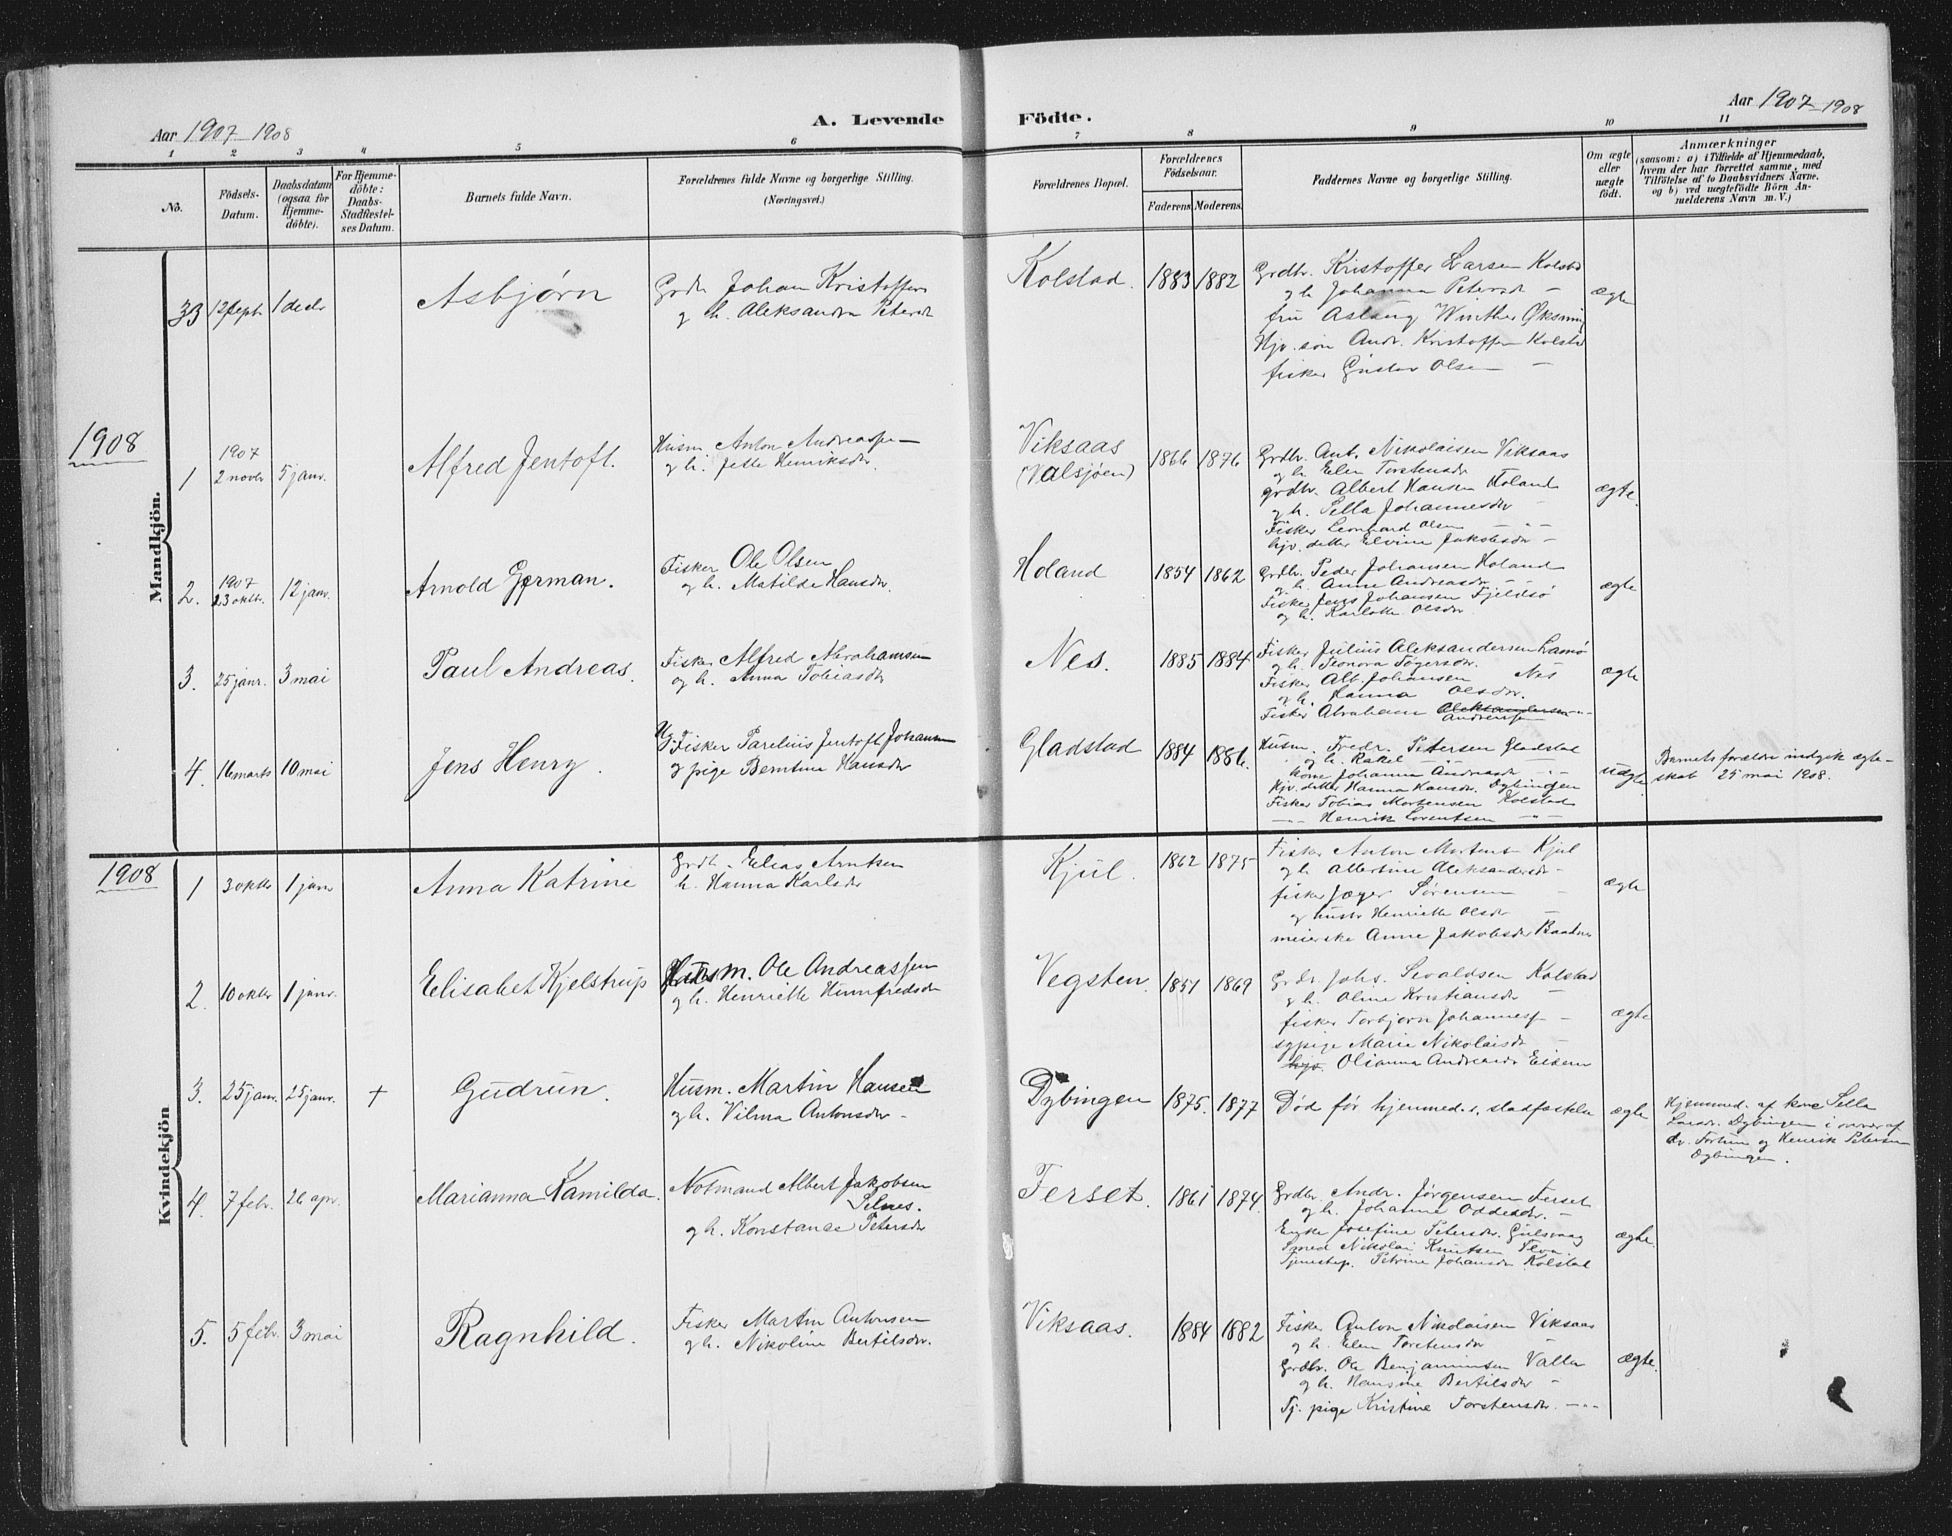 Aar 1907-1908
A. Levende
Födte.
Aar 1907-1908
1 2 3 4 5 6 7 8 9 10 11
No.
Födsels-
Datum.
Daabsdatum
(ogsaa for
Hjemme-
döbte).
For Hjemme-
döbte:
Daabs-
Stadfæstel-
ses Datum.
Barnets fulde Navn.
Forældrenes fulde Navne og borgerlige Stilling.
(Næringsvei.)
Forældrenes Bopæl.
Forældrenes
Födselsaar.
Faderens. Moderens.
Faddernes Navne og borgerlige Stilling.
Om ægte
eller
uægte
födt.
Anmærkninger
(saasom: a) i Tilfælde af Hjemmedaab,
hvem der har forrettet samme, med
Tilföielse af to Daabsvidners Navne.
og b) ved uægtefödte Börn An-
melderens Navn m. V.)
33 12 sept. 1 decbr
Asbjørn
Grdb. Johan Kristoffers
og h. Aleksandra Petersdr
Kolstad. 1883 1882
Grdbr. Kristoffer Larsen Kolstad
og h. Johanna Petersdr —
fru Aslaug Winther Øksning
Hjv. søn Andr. Kristoffersen Kolstad
fisker Gustav Olsen —
ægte
1908
Mandkjön.
1 1907
2 novbr 5 janr.
Alfred Jentoft.
Husm. Anton Andreassen
og h. Jette Henriksdr.
Viksaas
(Valsjøen)
1866 1876
Grdbr. Ant. Nikolaisen Viksaas
og h. Elen Torstensdr
grdbr. Albert Hansen Holand
og h. Sella Johannesdr —
Fisker Leonhard Olsen —
hjv. datter Elvine Jakobsdr —
ægte.
2. 1907
23 oktbr. 12 janr.
Arnold German.
Fisker Ole Olsen
og h. Matilde Hansdr.
Holand 1854 1862
Grdbr. Peder Johansen Holand
og h. Anne Andreasdr —
Fisker Jens Johansen Fjeldsø
og h. Karlotte Olsdr.
ægte
3. 25 janr. 3 mai
Paul Andreas.
Fisker Alfred Abrahamsen
og h. Anna Tobiasdr
Nes. 1885 1884
Fisker Julius Aleksandersen Lasmo
og h. Leonora Jögersdr.
Fisker Alb. Johansen Nes
og h. Hanna Olsdr.
Fisker Abraham Aleksandersen —
Andreassen
ægte
4. 16 marts 10 mai
Jens Henry.
Ug. Fisker Parelius Jentoft Johansen
og pige Berntine Hansdr
Gladstad 1884 1886.
Husm. Fredr. Petersen Gladstad
og h. Rakel —
kone Johanna Andreasdr —
Hjv. datter Hanna Hansdr. Dybingen
Fisker Tobias Mortensen Kolstad
— Henrik Lorentsen —
uægte.
Barnets forældre indgik ægte-
skab 25 mai 1908.
1908
Kvindekjön
1 3 oktbr 1 janr
Anna Katrine
Grdb. Elias Arntsen
h. Hanna Karlsdr
Kjul. 1862 1875
Fisker Anton Mortens Kjul
og h. Albertine Aleksandersdr —
fisker Jæger Sørensen —
og hustr Henriette Olsdr —
meierske Anne Jakobsdr
ægte
2. 10 oktbr 1 janr.
Elisabet Kjelstrup
Husm. Ole Andreassen
og h. Henriette Humfredsdr
Vegsten. 1857 1869
Grdb Johs. Sevaldsen Kolstad
og h. Oline Kristiansdr —
fisker Torbjørn Johanness. —
sypige Marie Nikolaisdr —
hjv. Olianna Andreasdr
ægte
3. 25 janr. 25 janr. +
Gudrun.
Husm. Martin Hansen
og h. Vilma Antonsdr —
Dybingen 1875. 1877
Død før hjemmed.s. stadfæstelse
ægte
Hjemmed. af kone Sella
Larsdr. Dybingen i overvær af
dr. Fortun og Henrik Petersen
Dybingen.
4. 7 febr. 26 apr.
Marianna Kamilda.
Notmand Albert Jakobsen
Selnes.
og h. Konstance Petersdr
Ferset. 1861 1874.
Grdbr. Andr. Jørgensen Ferset
og h. Johanna Oddesdr. —
Enke Josefine Petersdr. Gulsvaag
Smed Nikolai Knutsen Flva.
Tjenestep. Petrine Johansdr Kolstad
ægte.
5. 5 febr. 3 mai
Ragnhild.
Fisker Martin Antonsen
og h. Nikoline Bertilsdr.
Viksaas. 1884 1882
Fisker Anton Nikolaisen Viksaas
og h. Elen Torstensdr —
Grdbr. Ole Benjaminsen Valla
og h. Hansine Bertilsdr —
Tj. pige Kristine Torstensdr. —
ægte.